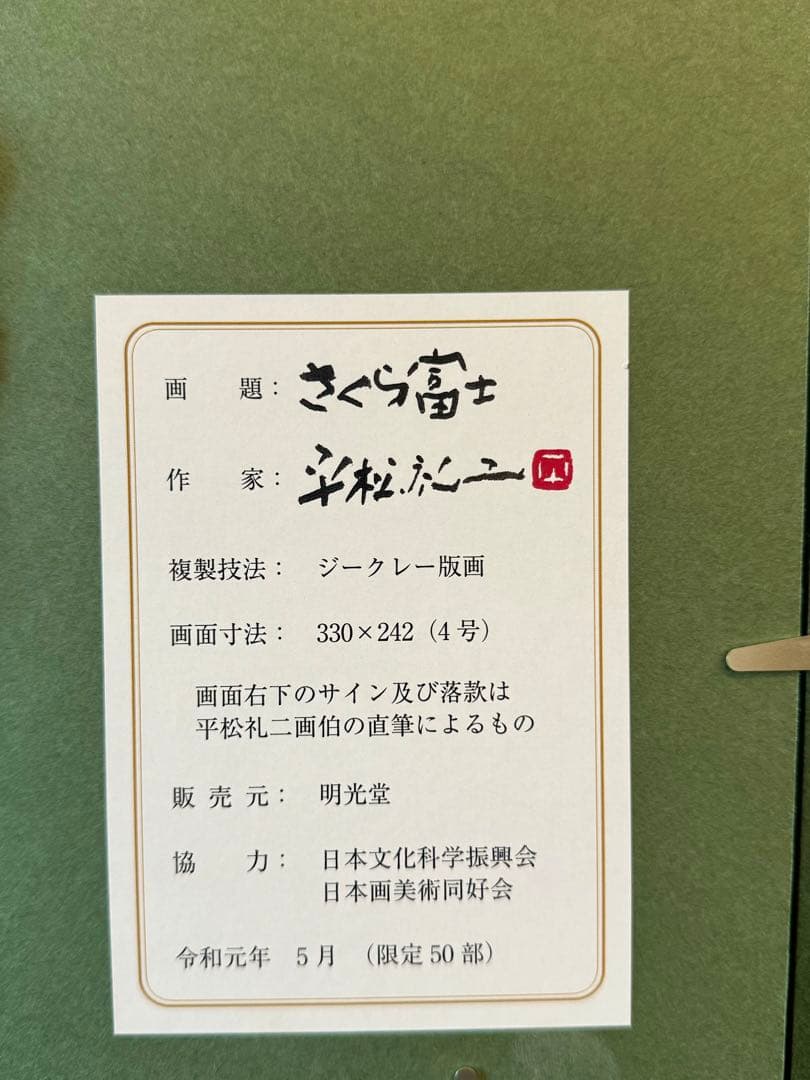 画 題： さくら富士
作 家： 平松礼二
複製技法： ジークレー版画
画面寸法： 330×242（4号）
画面右下のサイン及び落款は
平松礼二画伯の直筆によるもの
販 売 元： 明光堂
協 力： 日本文化科学振興会
日本画美術同好会
令和元年 5月 （限定50部）